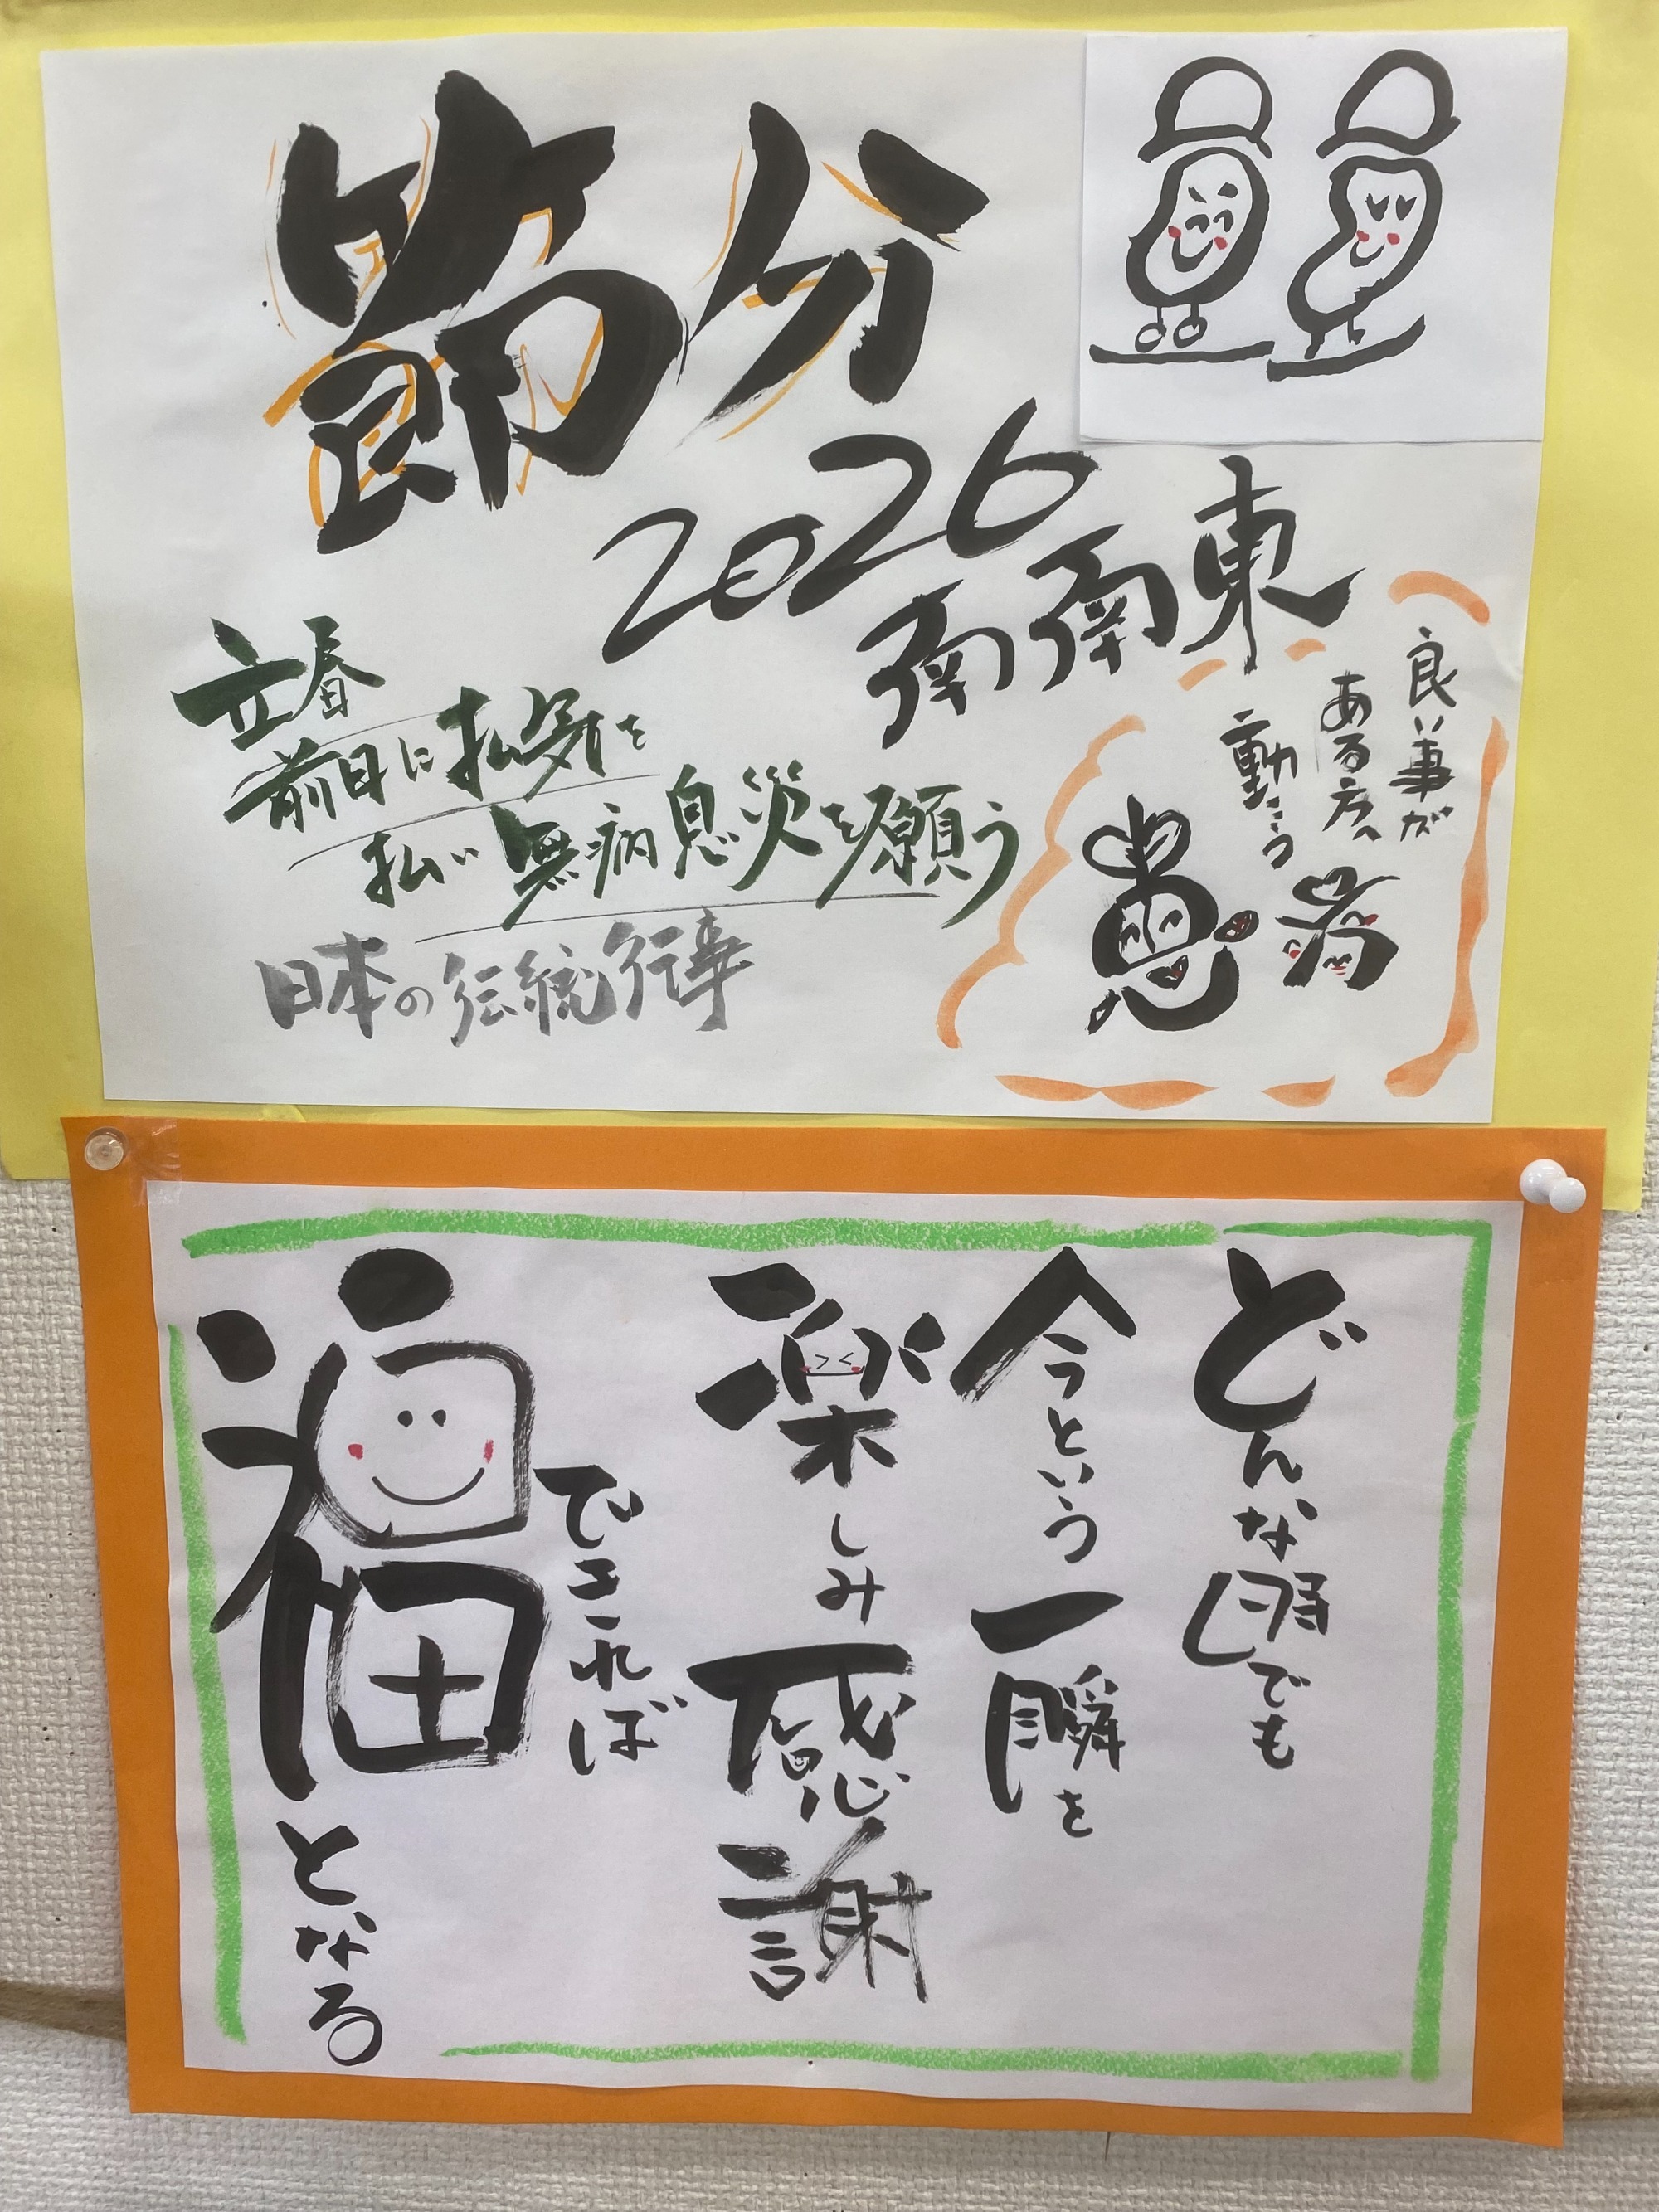 節分
2026
南南東
立春
前日に
払い無病息災を願う
日本の伝統行事
良い事が
ある方へ
動こう
どんな時でも
今という一瞬を
楽しみ感謝
できれば
福となる